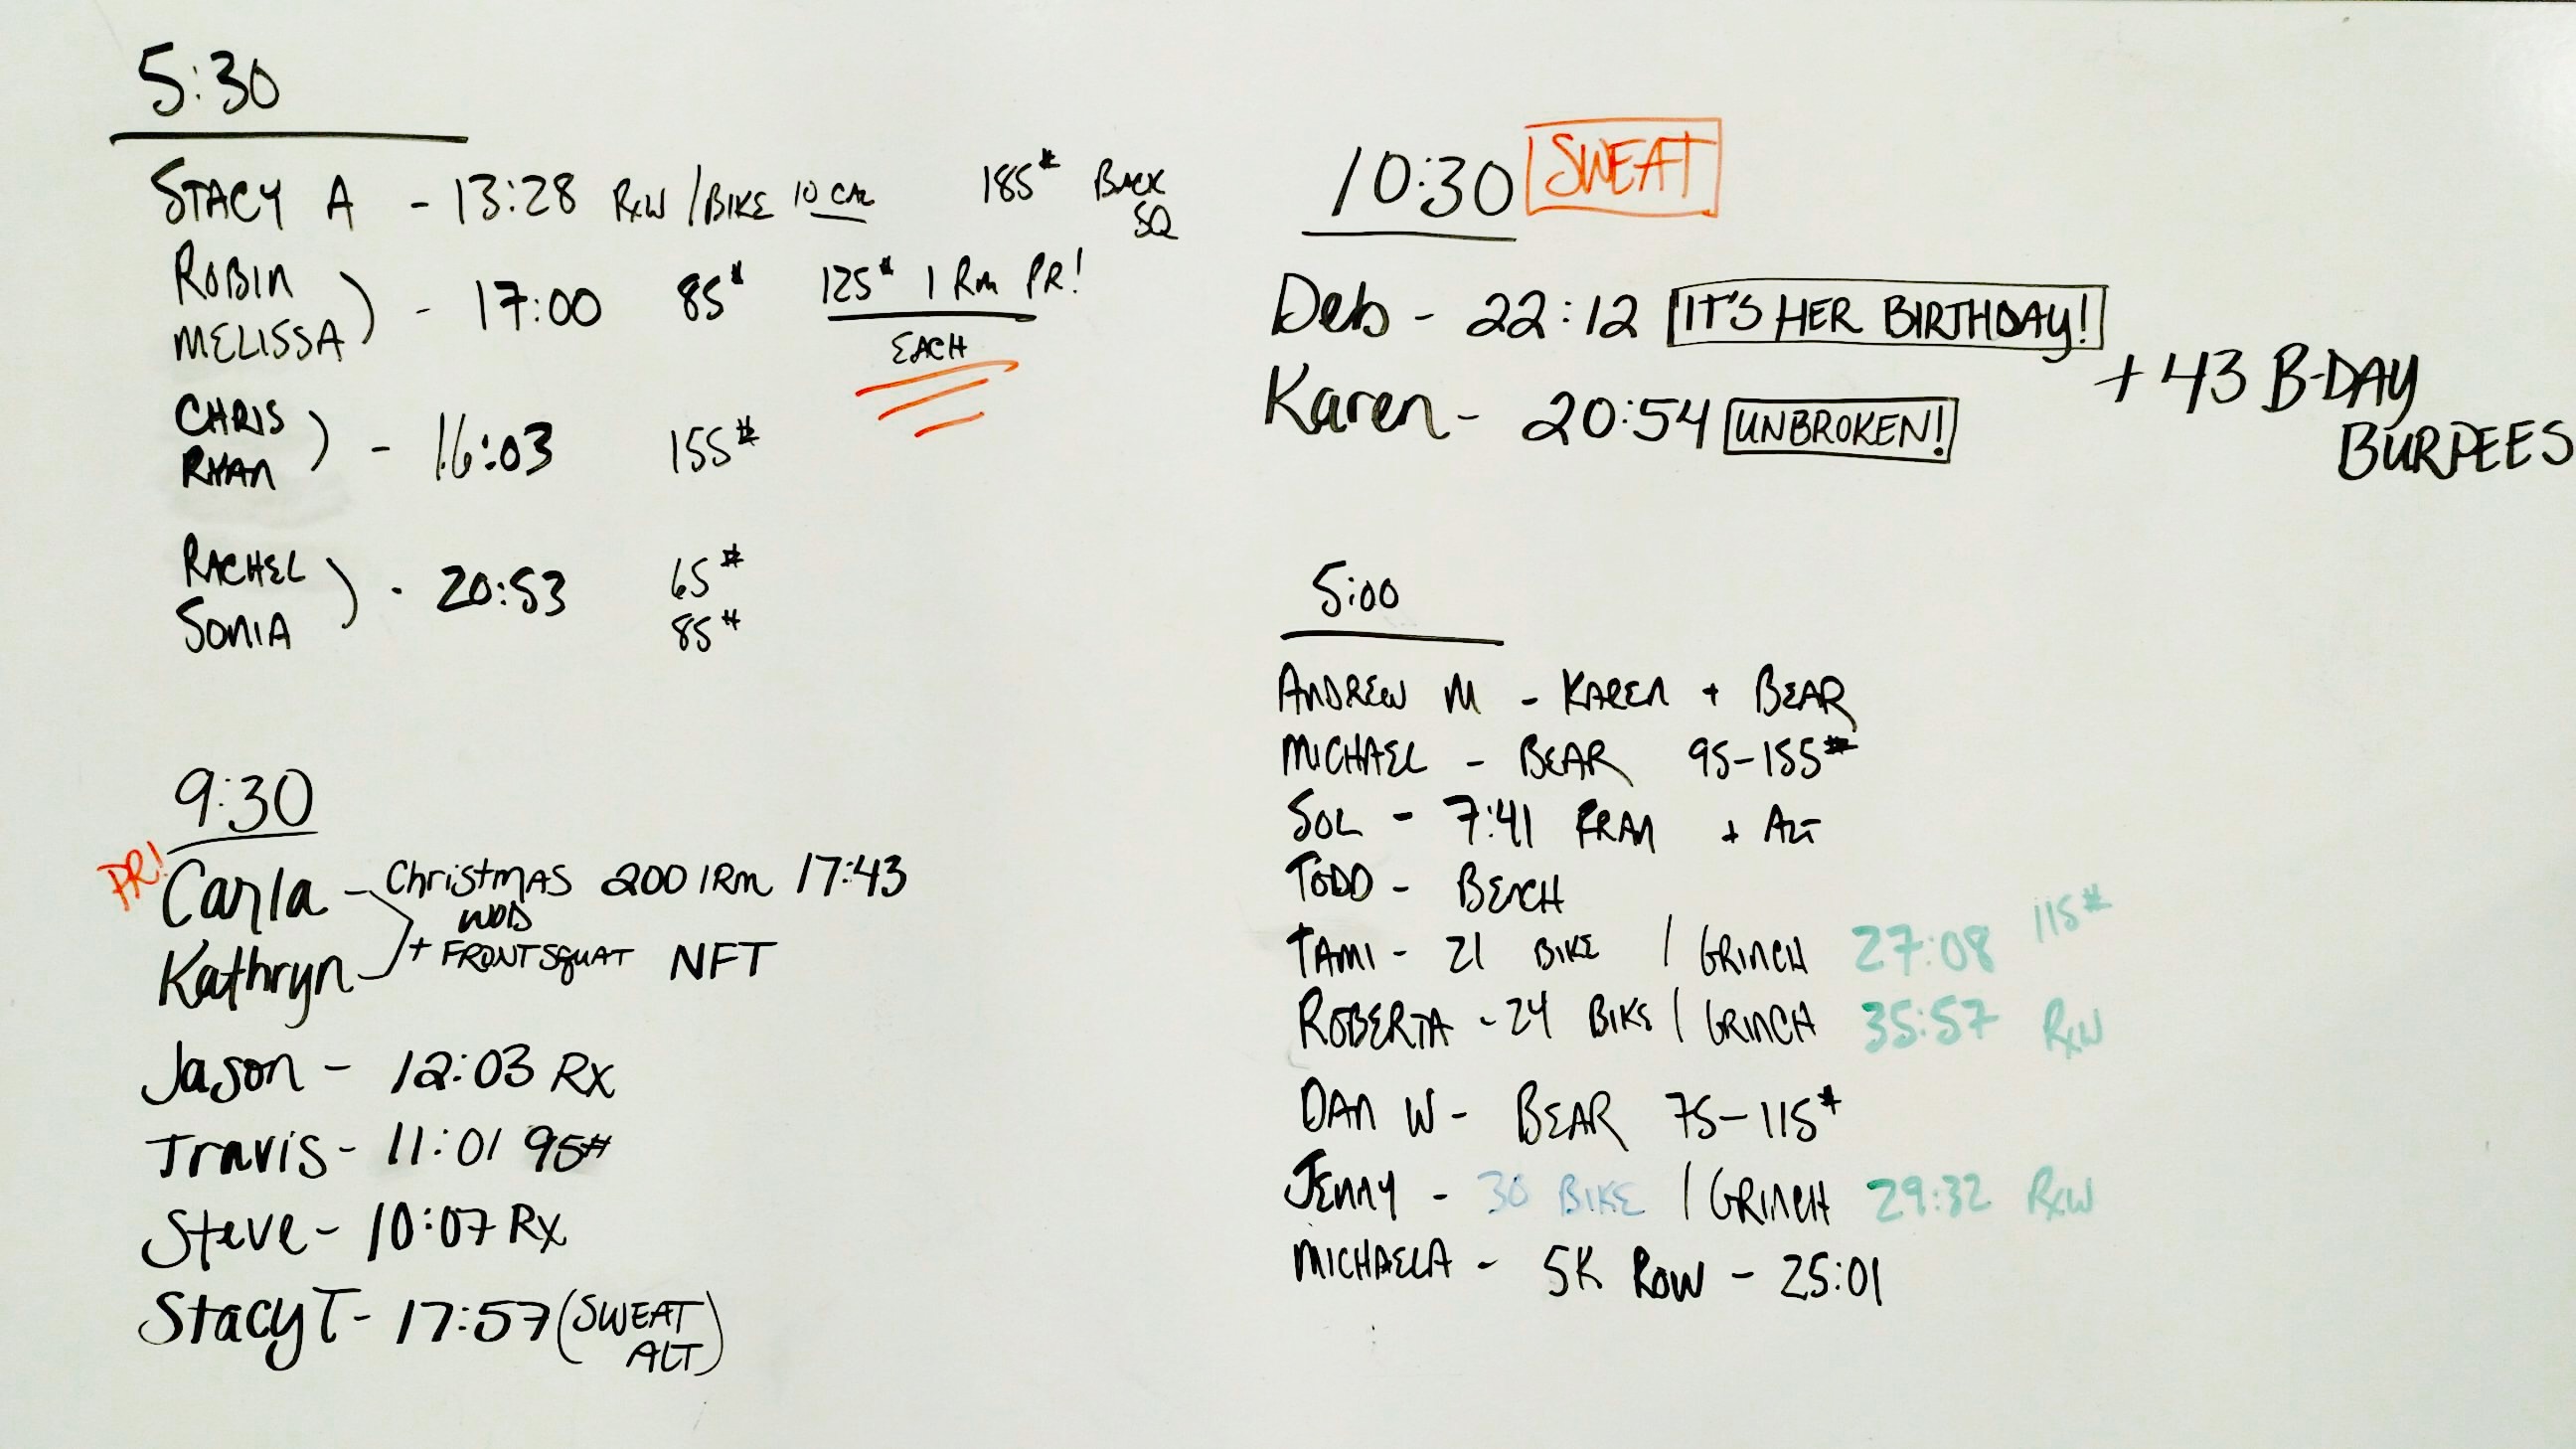 5:30
STACY A - 13:28 RxW / BIKE 10 CAL 185# BACK SQ
ROBIN
MELISSA ) - 17:00 85# 125# 1 RM PR!
EACH
CHRIS
RYAN ) - 16:03 155#
RACHEL 65#
SONIA ) - 20:53 85#
9:30
PR! Carla - Christmas 200 1RM 17:43
WOD
Kathryn + FRONT SQUAT NFT
Jason - 12:03 Rx
Travis - 11:01 95#
Steve - 10:07 Rx
Stacy T - 17:57 (SWEAT
ALT)
10:30 SWEAT
Deb - 22:12 IT'S HER BIRTHDAY!
+ 43 B-DAY
BURPEES
Karen - 20:54 UNBROKEN!
5:00
ANDREW M - KAREN + BEAR
MICHAEL - BEAR 95-155#
SOL - 7:41 FRAN + ALT
TODD - BENCH
TAMI - 21 BIKE / GRINCH 27:08 115#
ROBERTA - 24 BIKE / GRINCH 35:57 RxW
DAN W - BEAR 75-115#
JENNY - 30 BIKE / GRINCH 29:32 RxW
MICHAELA - 5K ROW - 25:01